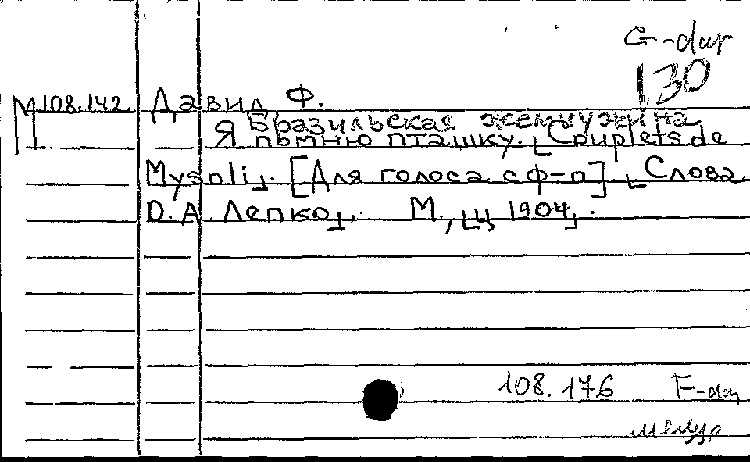 G-dur
130
М 108.142 Давид Ф.
Бразильская жемчужина
Я помню пташку. [Couplets de
Mysoli]. [Для голоса с ф-п] [Слова
D.A. Лепко]. М, [ц. 1904].
108.176 F-dur